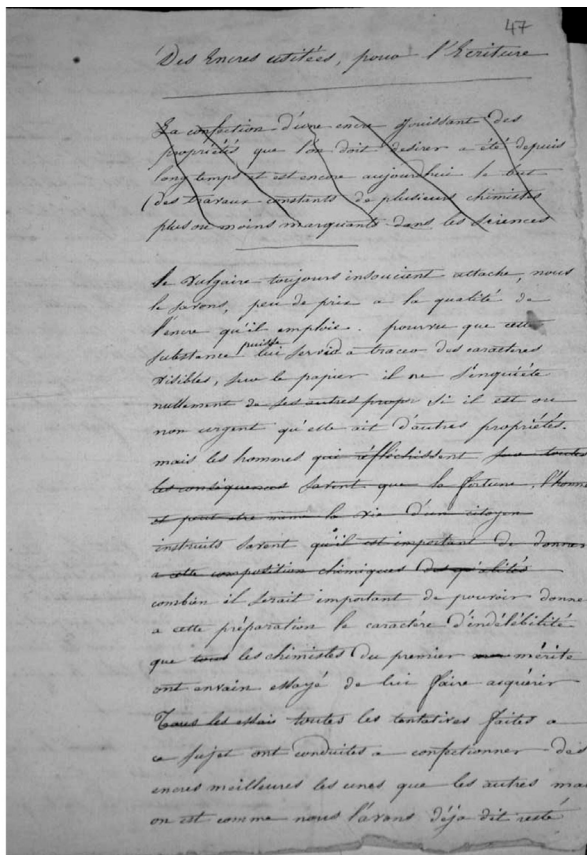 47
Des Encres usitées, pour l'Ecriture
La confection d'une encre jouissant des
propriétés que l'on doit desirer a été depuis
long temps et est encore aujourdhui le but
(des travaux constants de plusieurs chimistes
plus ou moins marquants dans les sciences
le Vulgaire toujours insoucient attache, nous
le savons, peu de prix a la qualité de
l'encre qu'il emploie. pourvu que cette
substance puisse lui servir a tracer des caractères
visibles, sur le papier il ne s'inquiéte
nullement de ses autres propr si il est ou
non urgent qu'elle ait d'autres propriétés.
mais les hommes qui réfléchissent sur toutes
les conséquences savent que la fortune, l'honn
et peut etre même la vie d'un citoyen
instruits savent qu'il est important de donner
a cette composition chimiques des qualités
combien il serait important de pouvoir donne
a cette préparation le caractére d'indélébilité
que tous les chimistes du premier mérite
ont envain essayé de lui faire acquérir
Tous les essais toutes les tentatives faites a
ce sujet ont conduites a confectionner des
encres meilleures les unes que les autres mai
on est comme nous l'avons déja dit resté